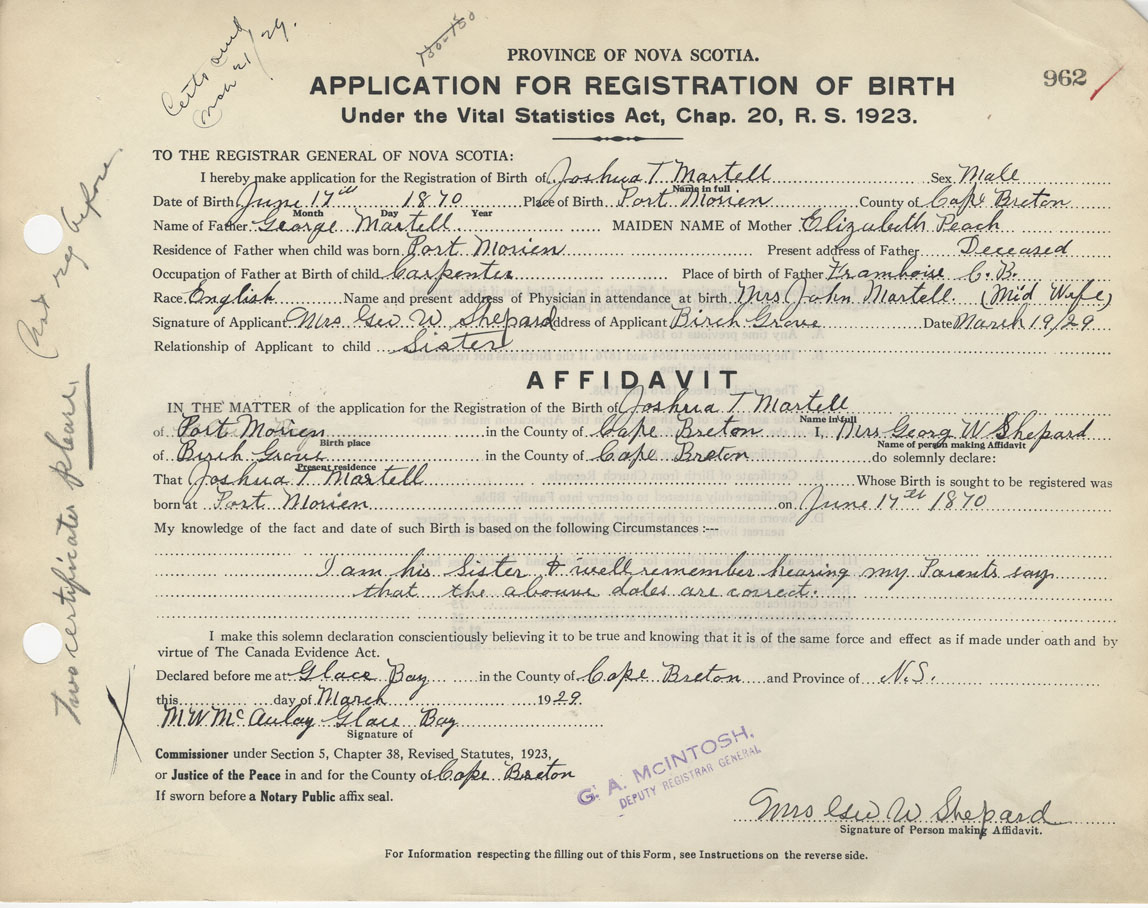 Certs send
Mar 21/29.
730-150
PROVINCE OF NOVA SCOTIA.
962
APPLICATION FOR REGISTRATION OF BIRTH
Under the Vital Statistics Act, Chap. 20, R. S. 1923.
TO THE REGISTRAR GENERAL OF NOVA SCOTIA:
I hereby make application for the Registration of Birth of Joshua T Martell Sex Male
Name in full
Date of Birth June 17th 1870 Place of Birth Port Morien County of Cape Breton
Month Day Year
Name of Father George Martell MAIDEN NAME of Mother Elizabeth Peach
Residence of Father when child was born Port Morien Present address of Father Deceased
Occupation of Father at Birth of child Carpenter Place of birth of Father Framboise C.B.
Race English Name and present address of Physician in attendance at birth Mrs John Martell. (Mid Wife)
Signature of Applicant Mrs Geo W Shepard Address of Applicant Birch Grove Date March 19/29
Relationship of Applicant to child Sister
AFFIDAVIT
IN THE MATTER of the application for the Registration of the Birth of Joshua T Martell
Name in full
of Port Morien in the County of Cape Breton I, Mrs Georg W Shepard
Birth place Name of person making Affidavit
of Birch Grove in the County of Cape Breton do solemnly declare:
Present residence
That Joshua T Martell Whose Birth is sought to be registered was
born at Port Morien on June 17th 1870
My knowledge of the fact and date of such Birth is based on the following Circumstances :---
I am his Sister & well remember hearing my Parents say
that the aboure dates are correct.
I make this solemn declaration conscientiously believing it to be true and knowing that it is of the same force and effect as if made under oath and by
virtue of The Canada Evidence Act.
Declared before me at Glace Bay in the County of Cape Breton and Province of N.S.
this day of March 1929.
M W McAulay Glace Bay
Signature of
Commissioner under Section 5, Chapter 38, Revised Statutes, 1923,
or Justice of the Peace in and for the County of Cape Breton
If sworn before a Notary Public affix seal.
G. A. MCINTOSH,
DEPUTY REGISTRAR GENERAL
Mrs Geo W Shepard
Signature of Person making Affidavit.
For Information respecting the filling out of this Form, see Instructions on the reverse side.
Two certificates please. Not reg before.